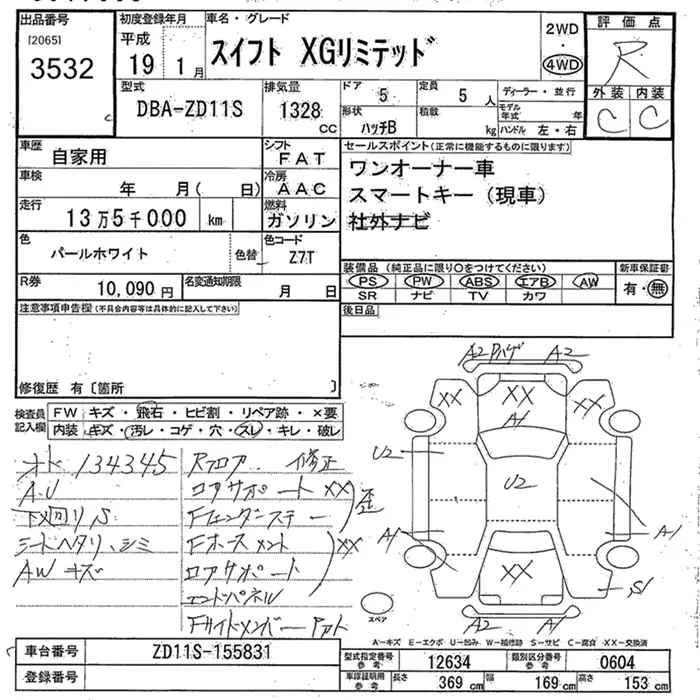 出品番号 初度登録年月 車名・グレード 2WD 評価点
[2065] 平成 スイフト XGリミテッド ・ R
3532 19 1月 4WD
型式 排気量 ドア 5 定員 5人 ディーラー・並行 外装 内装
DBA-ZD11S 1328cc 形状 ハッチB 積数 kg モデル年式 年 C C
ハンドル 左・右
車歴 自家用 シフト FAT セールスポイント(正常に機能するものに限ります)
車検 年 月( 日) 冷房 AAC ワンオーナー車
走行 13万5千000 km 燃料 ガソリン スマートキー(現車)
社外ナビ
色 パールホワイト 色替 色コード Z7T
装備品(純正品に限り○をつけてください) 新車保証書
R券 10,090円 名変通知期限 月 日 PS PW ABS エアB AW 有・無
SR ナビ TV カワ
注意事項申告欄(不具合内容等は具体的に記入して下さい) 後日品
修復歴 有〔箇所 〕
検査員記入欄 FW キズ・飛石・ヒビ割・リペア跡・×要
内装 キズ・汚レ・コゲ・穴・スレ・キレ・破レ
オド 134345 Rフロア 修正
A.U コアサポート XX
下メ回リS Fフェンダーステー 歪
シートヘタリ、シミ Fホースメント XX
AWキズ ロアサポート
エンドパネル
Fサイドメンバー
A2 ハゲ A2
XX XX XX
A1
U2 U2
A1 A1
XX S1
A2 A1
スペア
A-キズ E-エクボ U-凹み W-補修跡 S-サビ C-腐食 XX-交換済
車台番号 ZD11S-155831 型式指定番号 参考 12634 類別区分番号 参考 0604
登録番号 車庫証明用 参考 長さ 369 cm 幅 169 cm 高さ 153 cm